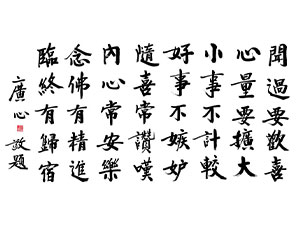 聞過要歡喜
心量要擴大
小事不計較
好事不嫉妒
隨喜常讚嘆
內心常安樂
念佛有精進
臨終有歸宿
廣心敬題